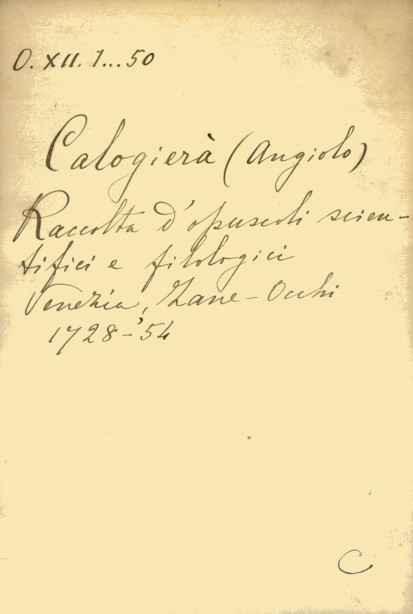 O. XII. 1...50
Calogierà (Angiolo)
Raccolta d'opuscoli scien-
tifici e filologici
Venezia, Zane-Occhi
1728-'54
C